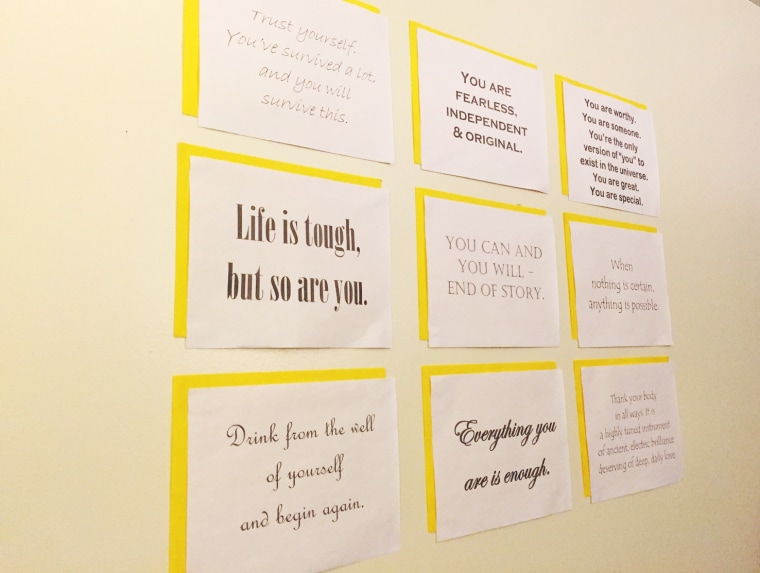 Trust yourself.
You've survived a lot,
and you will
survive this.
YOU ARE
FEARLESS,
INDEPENDENT
& ORIGINAL.
You are worthy.
You are someone.
You're the only
version of "you" to
exist in the universe.
You are great.
You are special.
Life is tough,
but so are you.
YOU CAN AND
YOU WILL –
END OF STORY.
When
nothing is certain,
anything is possible.
Drink from the well
of yourself
and begin again.
Everything you
are is enough.
Thank your body
in all ways. It is
a highly tuned instrument
of ancient, electric brilliance
deserving of deep, daily love.